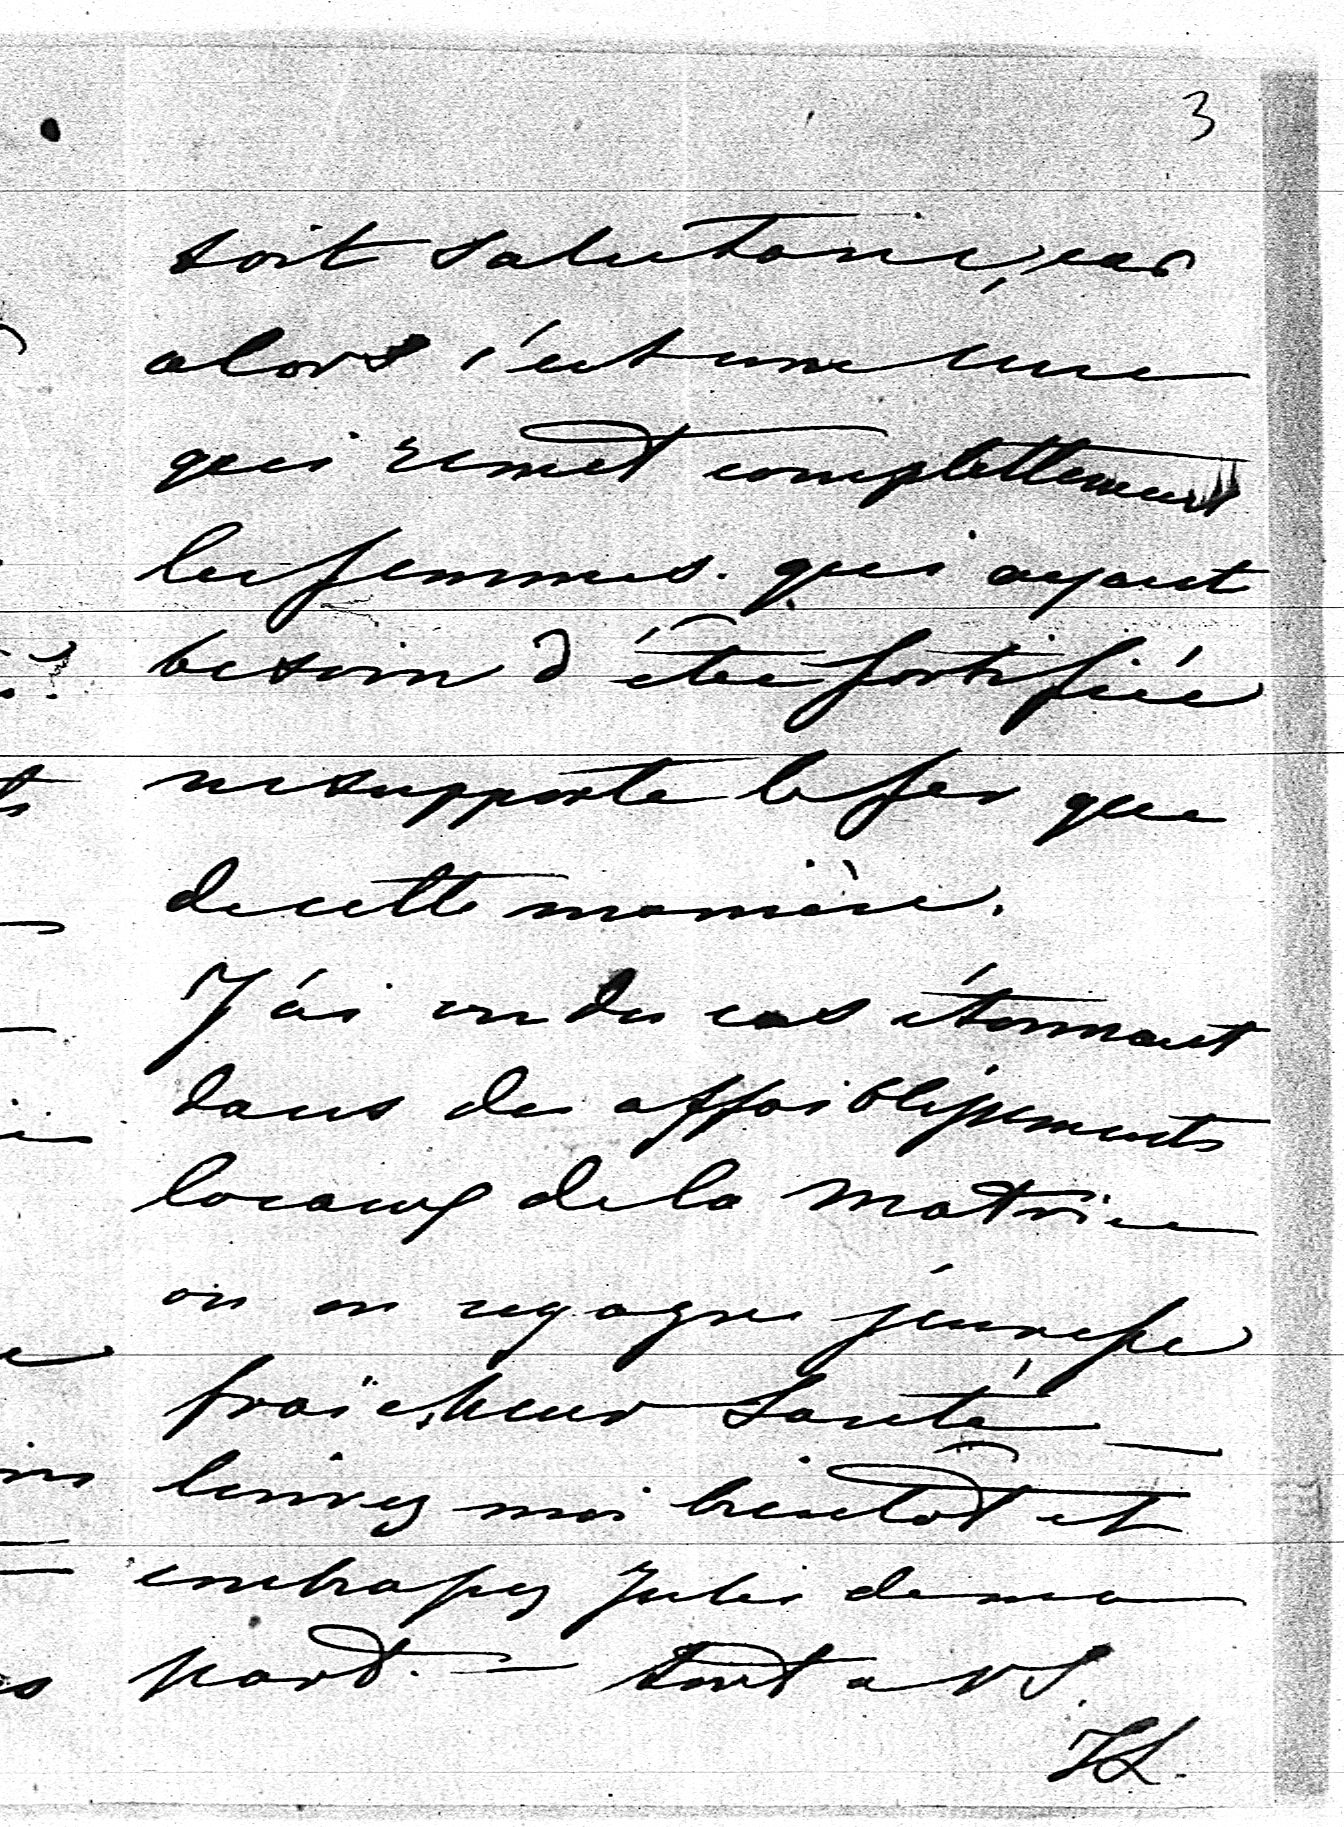 3
soit salutaire, car
alors c'est une cure
qui remet complettement
les femmes. qui ayant
besoin d'être fortifiée
ne supporte le fer que
de cette manière.
J'ai vu des cas étonnant
dans des affaiblissements
locaux de la matrice
on en regagne jeunesse
fraicheur Santé —
Ecrivez moi bientôt et
embrassez Julie de ma
part. — tout a vs.